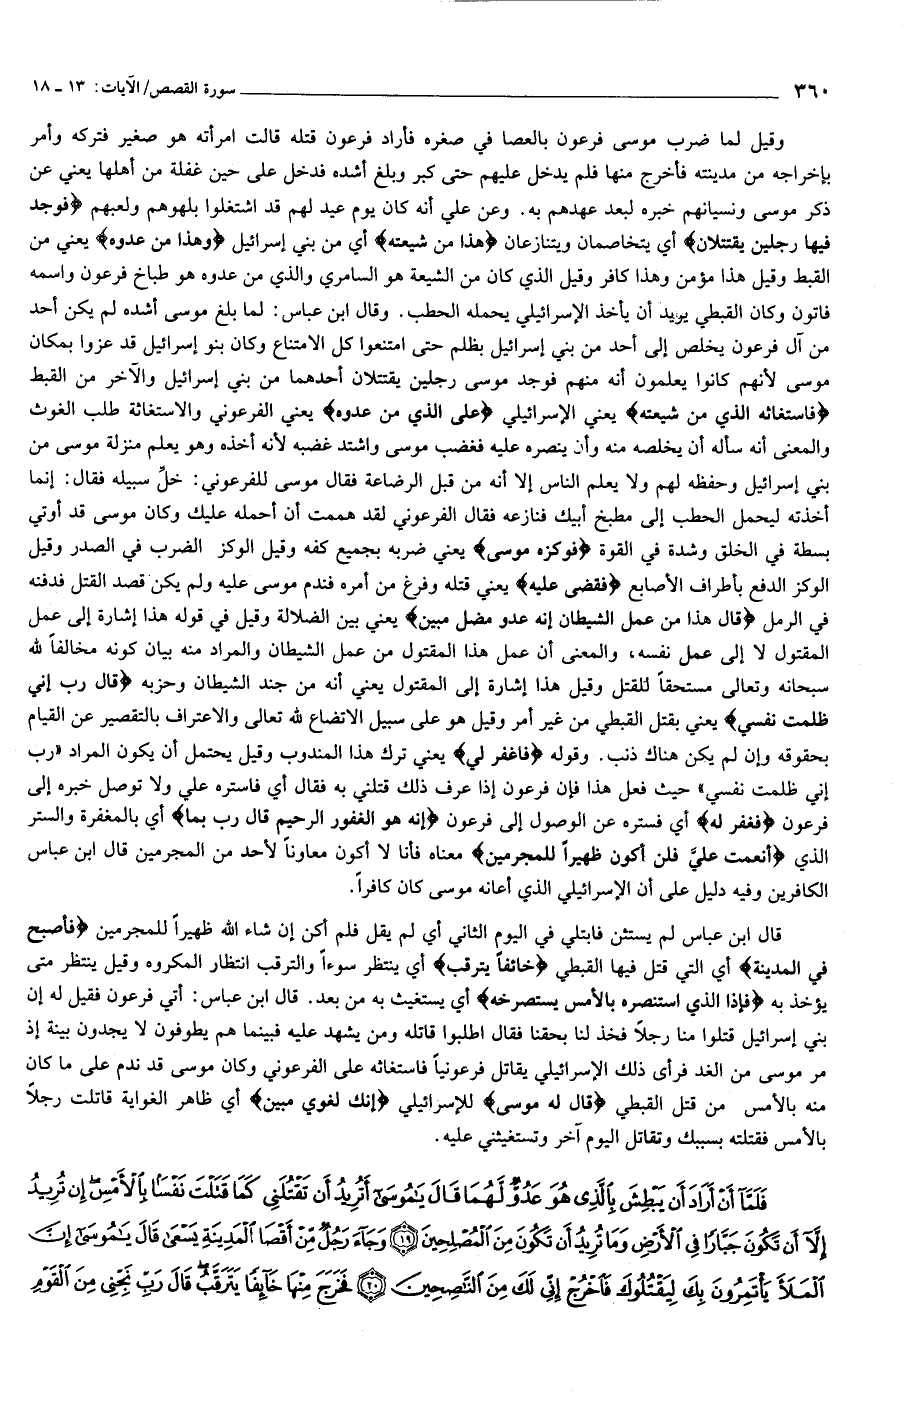 ٣٦٠ سورة القصص/ الآيات: ١٣ ـ ١٨
وقيل لما ضرب موسى فرعون بالعصا في صغره فأراد فرعون قتله قالت امرأته هو صغير فتركه وأمر
بإخراجه من مدينته فأخرج منها فلم يدخل عليهم حتى كبر وبلغ أشده فدخل على حين غفلة من أهلها يعني عن
ذكر موسى ونسيانهم خبره لبعد عهدهم به. وعن علي أنه كان يوم عيد لهم قد اشتغلوا بلهوهم ولعبهم ﴿فوجد
فيها رجلين يقتتلان﴾ أي يتخاصمان ويتنازعان ﴿هذا من شيعته﴾ أي من بني إسرائيل ﴿وهذا من عدوه﴾ يعني من
القبط وقيل هذا مؤمن وهذا كافر وقيل الذي كان من الشيعة هو السامري والذي من عدوه هو طباخ فرعون واسمه
فاتون وكان القبطي يريد أن يأخذ الإسرائيلي يحمله الحطب. وقال ابن عباس: لما بلغ موسى أشده لم يكن أحد
من آل فرعون يخلص إلى أحد من بني إسرائيل بظلم حتى امتنعوا كل الامتناع وكان بنو إسرائيل قد عزوا بمكان
موسى لأنهم كانوا يعلمون أنه منهم فوجد موسى رجلين يقتتلان أحدهما من بني إسرائيل والآخر من القبط
﴿فاستغاثه الذي من شيعته﴾ يعني الإسرائيلي ﴿على الذي من عدوه﴾ يعني الفرعوني والاستغاثة طلب الغوث
والمعنى أنه سأله أن يخلصه منه وأن ينصره عليه فغضب موسى واشتد غضبه لأنه أخذه وهو يعلم منزلة موسى من
بني إسرائيل وحفظه لهم ولا يعلم الناس إلا أنه من قبل الرضاعة فقال موسى للفرعوني: خلِّ سبيله فقال: إنما
أخذته ليحمل الحطب إلى مطبخ أبيك فنازعه فقال الفرعوني لقد هممت أن أحمله عليك وكان موسى قد أوتي
بسطة في الخلق وشدة في القوة ﴿فوكزه موسى﴾ يعني ضربه بجميع كفه وقيل الوكز الضرب في الصدر وقيل
الوكز الدفع بأطراف الأصابع ﴿فقضى عليه﴾ يعني قتله وفرغ من أمره فندم موسى عليه ولم يكن قصد القتل فدفنه
في الرمل ﴿قال هذا من عمل الشيطان إنه عدو مضل مبين﴾ يعني بين الضلالة وقيل في قوله هذا إشارة إلى عمل
المقتول لا إلى عمل نفسه، والمعنى أن عمل هذا المقتول من عمل الشيطان والمراد منه بيان كونه مخالفاً لله
سبحانه وتعالى مستحقاً للقتل وقيل هذا إشارة إلى المقتول يعني أنه من جند الشيطان وحزبه ﴿قال رب إني
ظلمت نفسي﴾ يعني بقتل القبطي من غير أمر وقيل هو على سبيل الاتضاع لله تعالى والاعتراف بالتقصير عن القيام
بحقوقه وإن لم يكن هناك ذنب. وقوله ﴿فاغفر لي﴾ يعني ترك هذا المندوب وقيل يحتمل أن يكون المراد «رب
إني ظلمت نفسي» حيث فعل هذا فإن فرعون إذا عرف ذلك قتلني به فقال أي فاستره علي ولا توصل خبره إلى
فرعون ﴿فغفر له﴾ أي فستره عن الوصول إلى فرعون ﴿إنه هو الغفور الرحيم قال رب بما﴾ أي بالمغفرة والستر
الذي ﴿أنعمت عليَّ فلن أكون ظهيراً للمجرمين﴾ معناه فأنا لا أكون معاوناً لأحد من المجرمين قال ابن عباس
الكافرين وفيه دليل على أن الإسرائيلي الذي أعانه موسى كان كافراً.
قال ابن عباس لم يستثن فابتلي في اليوم الثاني أي لم يقل فلم أكن إن شاء الله ظهيراً للمجرمين ﴿فأصبح
في المدينة﴾ أي التي قتل فيها القبطي ﴿خائفاً يترقب﴾ أي ينتظر سوءاً والترقب انتظار المكروه وقيل ينتظر متى
يؤخذ به ﴿فإذا الذي استنصره بالأمس يستصرخه﴾ أي يستغيث به من بعد. قال ابن عباس: أتي فرعون فقيل له إن
بني إسرائيل قتلوا منا رجلاً فخذ لنا بحقنا فقال اطلبوا قاتله ومن يشهد عليه فبينما هم يطوفون لا يجدون بينة إذ
مر موسى من الغد فرأى ذلك الإسرائيلي يقاتل فرعونياً فاستغاثه على الفرعوني وكان موسى قد ندم على ما كان
منه بالأمس من قتل القبطي ﴿قال له موسى﴾ للإسرائيلي ﴿إنك لغوي مبين﴾ أي ظاهر الغواية قاتلت رجلاً
بالأمس فقتلته بسببك وتقاتل اليوم آخر وتستغيثني عليه.
فَلَمَّآ أَنْ أَرَادَ أَن يَبْطِشَ بِٱلَّذِى هُوَ عَدُوٌّ لَّهُمَا قَالَ يَٰمُوسَىٰٓ أَتُرِيدُ أَن تَقْتُلَنِى كَمَا قَتَلْتَ نَفْسًۢا بِٱلْأَمْسِ إِن تُرِيدُ
إِلَّآ أَن تَكُونَ جَبَّارًا فِى ٱلْأَرْضِ وَمَا تُرِيدُ أَن تَكُونَ مِنَ ٱلْمُصْلِحِينَ ﴿١٩﴾ وَجَآءَ رَجُلٌ مِّنْ أَقْصَا ٱلْمَدِينَةِ يَسْعَىٰ قَالَ يَٰمُوسَىٰٓ إِنَّ
ٱلْمَلَأَ يَأْتَمِرُونَ بِكَ لِيَقْتُلُوكَ فَٱخْرُجْ إِنِّى لَكَ مِنَ ٱلنَّٰصِحِينَ ﴿٢٠﴾ فَخَرَجَ مِنْهَا خَآئِفًا يَتَرَقَّبُ قَالَ رَبِّ نَجِّنِى مِنَ ٱلْقَوْمِ